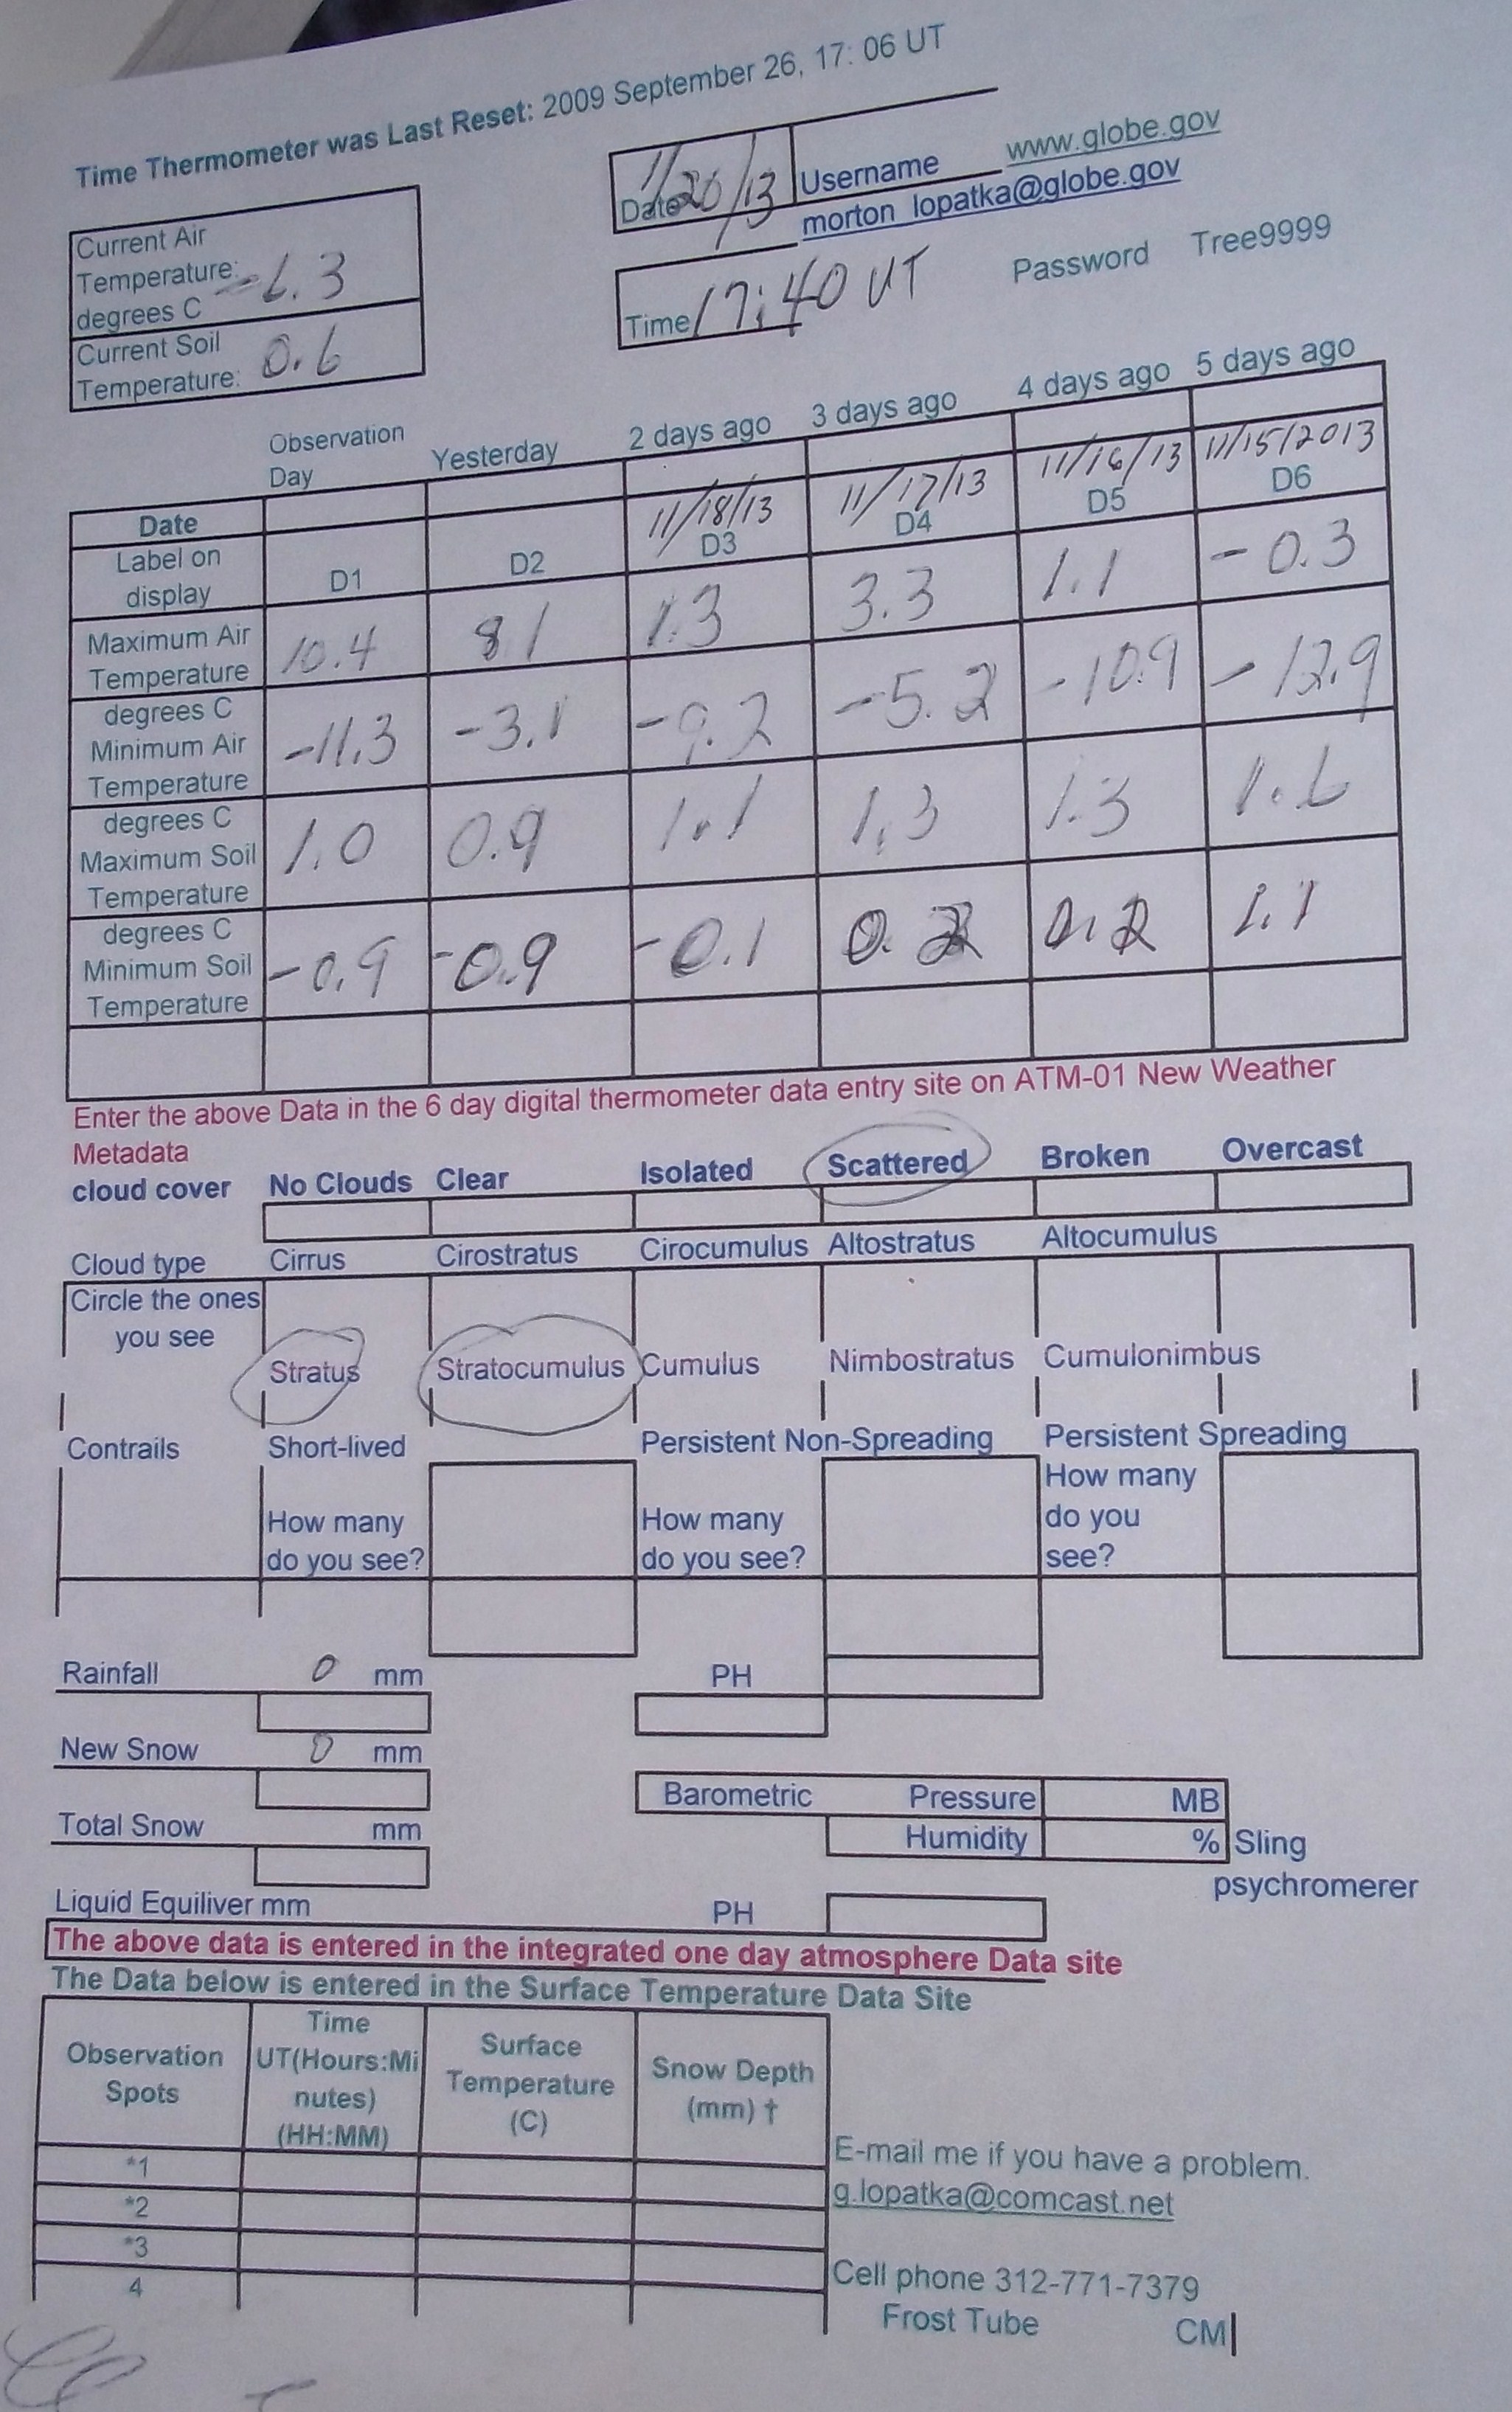 Time Thermometer was Last Reset: 2009 September 26, 17: 06 UT
Date 1/20/13 Username www.globe.gov
morton_lopatka@globe.gov
Current Air
Temperature: -6.3
degrees C
Time 17:40 UT Password Tree9999
Current Soil
Temperature: 0.6
Observation Day Yesterday 2 days ago 3 days ago 4 days ago 5 days ago
Date 11/18/13 11/17/13 11/16/13 11/15/2013
Label on display D1 D2 D3 D4 D5 D6
Maximum Air Temperature degrees C 10.4 8.1 1.3 3.3 1.1 -0.3
Minimum Air Temperature degrees C -11.3 -3.1 -9.2 -5.2 -10.9 -12.9
Maximum Soil Temperature degrees C 1.0 0.9 1.1 1.3 1.3 1.6
Minimum Soil Temperature -0.9 -0.9 -0.1 0.2 0.2 1.1
Enter the above Data in the 6 day digital thermometer data entry site on ATM-01 New Weather
Metadata
cloud cover No Clouds Clear Isolated Scattered Broken Overcast
Cloud type Cirrus Cirostratus Cirocumulus Altostratus Altocumulus
Circle the ones
you see
Stratus Stratocumulus Cumulus Nimbostratus Cumulonimbus
Contrails Short-lived Persistent Non-Spreading Persistent Spreading
How many do you see? How many do you see? How many do you see?
Rainfall 0 mm PH
New Snow 0 mm
Barometric Pressure MB
Total Snow mm Humidity % Sling
psychromerer
Liquid Equiliver mm PH
The above data is entered in the integrated one day atmosphere Data site
The Data below is entered in the Surface Temperature Data Site
Observation Spots Time UT(Hours:Minutes) (HH:MM) Surface Temperature (C) Snow Depth (mm) †
*1
*2
*3
4
E-mail me if you have a problem.
g.lopatka@comcast.net
Cell phone 312-771-7379
Frost Tube CM